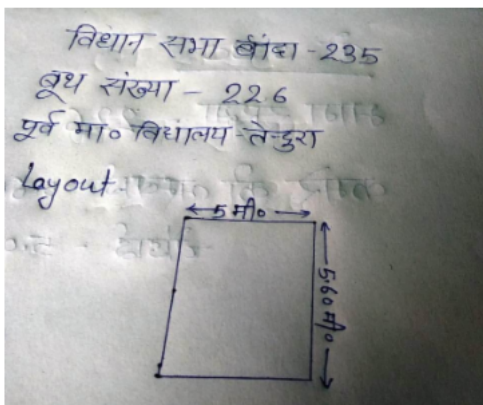 विधान सभा बांदा - 235
बूथ संख्या - 226
पूर्व मा० विधालय - तेन्दुरा
Layout
5 मी०
5.60 मी०